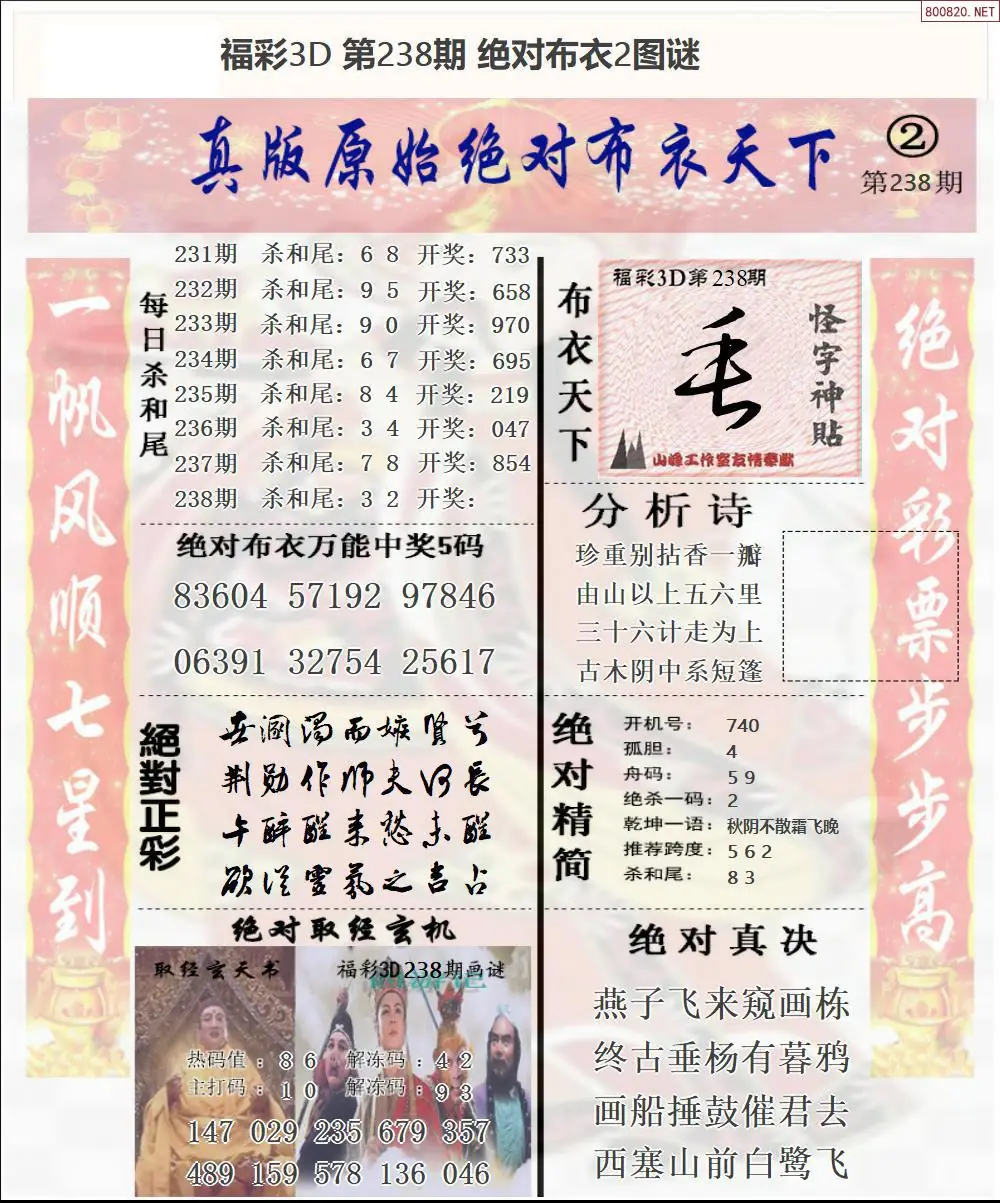 800820.NET
福彩3D 第238期 绝对布衣2图谜
真版原始绝对布衣天下
②
第238期
一帆风顺七星到
每日杀和尾
231期 杀和尾：6 8 开奖：733
232期 杀和尾：9 5 开奖：658
233期 杀和尾：9 0 开奖：970
234期 杀和尾：6 7 开奖：695
235期 杀和尾：8 4 开奖：219
236期 杀和尾：3 4 开奖：047
237期 杀和尾：7 8 开奖：854
238期 杀和尾：3 2 开奖：
绝对布衣万能中奖5码
83604 57192 97846
06391 32754 25617
絕對正彩
世溷浊而嫉贤兮
荆勋作师夫何长
午醉醒来愁未醒
欲从灵氛之吉占
绝对取经玄机
取经玄天书
福彩3D238期画谜
热码值：8 6 解冻码：4 2
主打码：1 0 解冻码：9 3
147 029 235 679 357
489 159 578 136 046
布衣天下
福彩3D第238期
怪字神貼
山峰工作室友情奉献
分析诗
珍重别拈香一瓣
由山以上五六里
三十六计走为上
古木阴中系短篷
绝对精简
开机号：740
孤胆：4
舟码：5 9
绝杀一码：2
乾坤一语：秋阴不散霜飞晚
推荐跨度：5 6 2
杀和尾：8 3
绝对真决
燕子飞来窥画栋
终古垂杨有暮鸦
画船捶鼓催君去
西塞山前白鹭飞
绝对彩票步步高